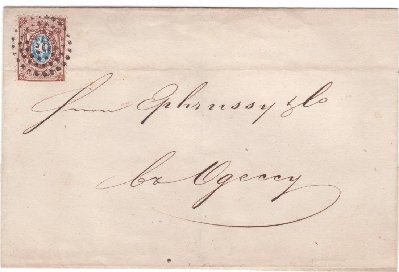 Ephrussy & Co
въ Одессу